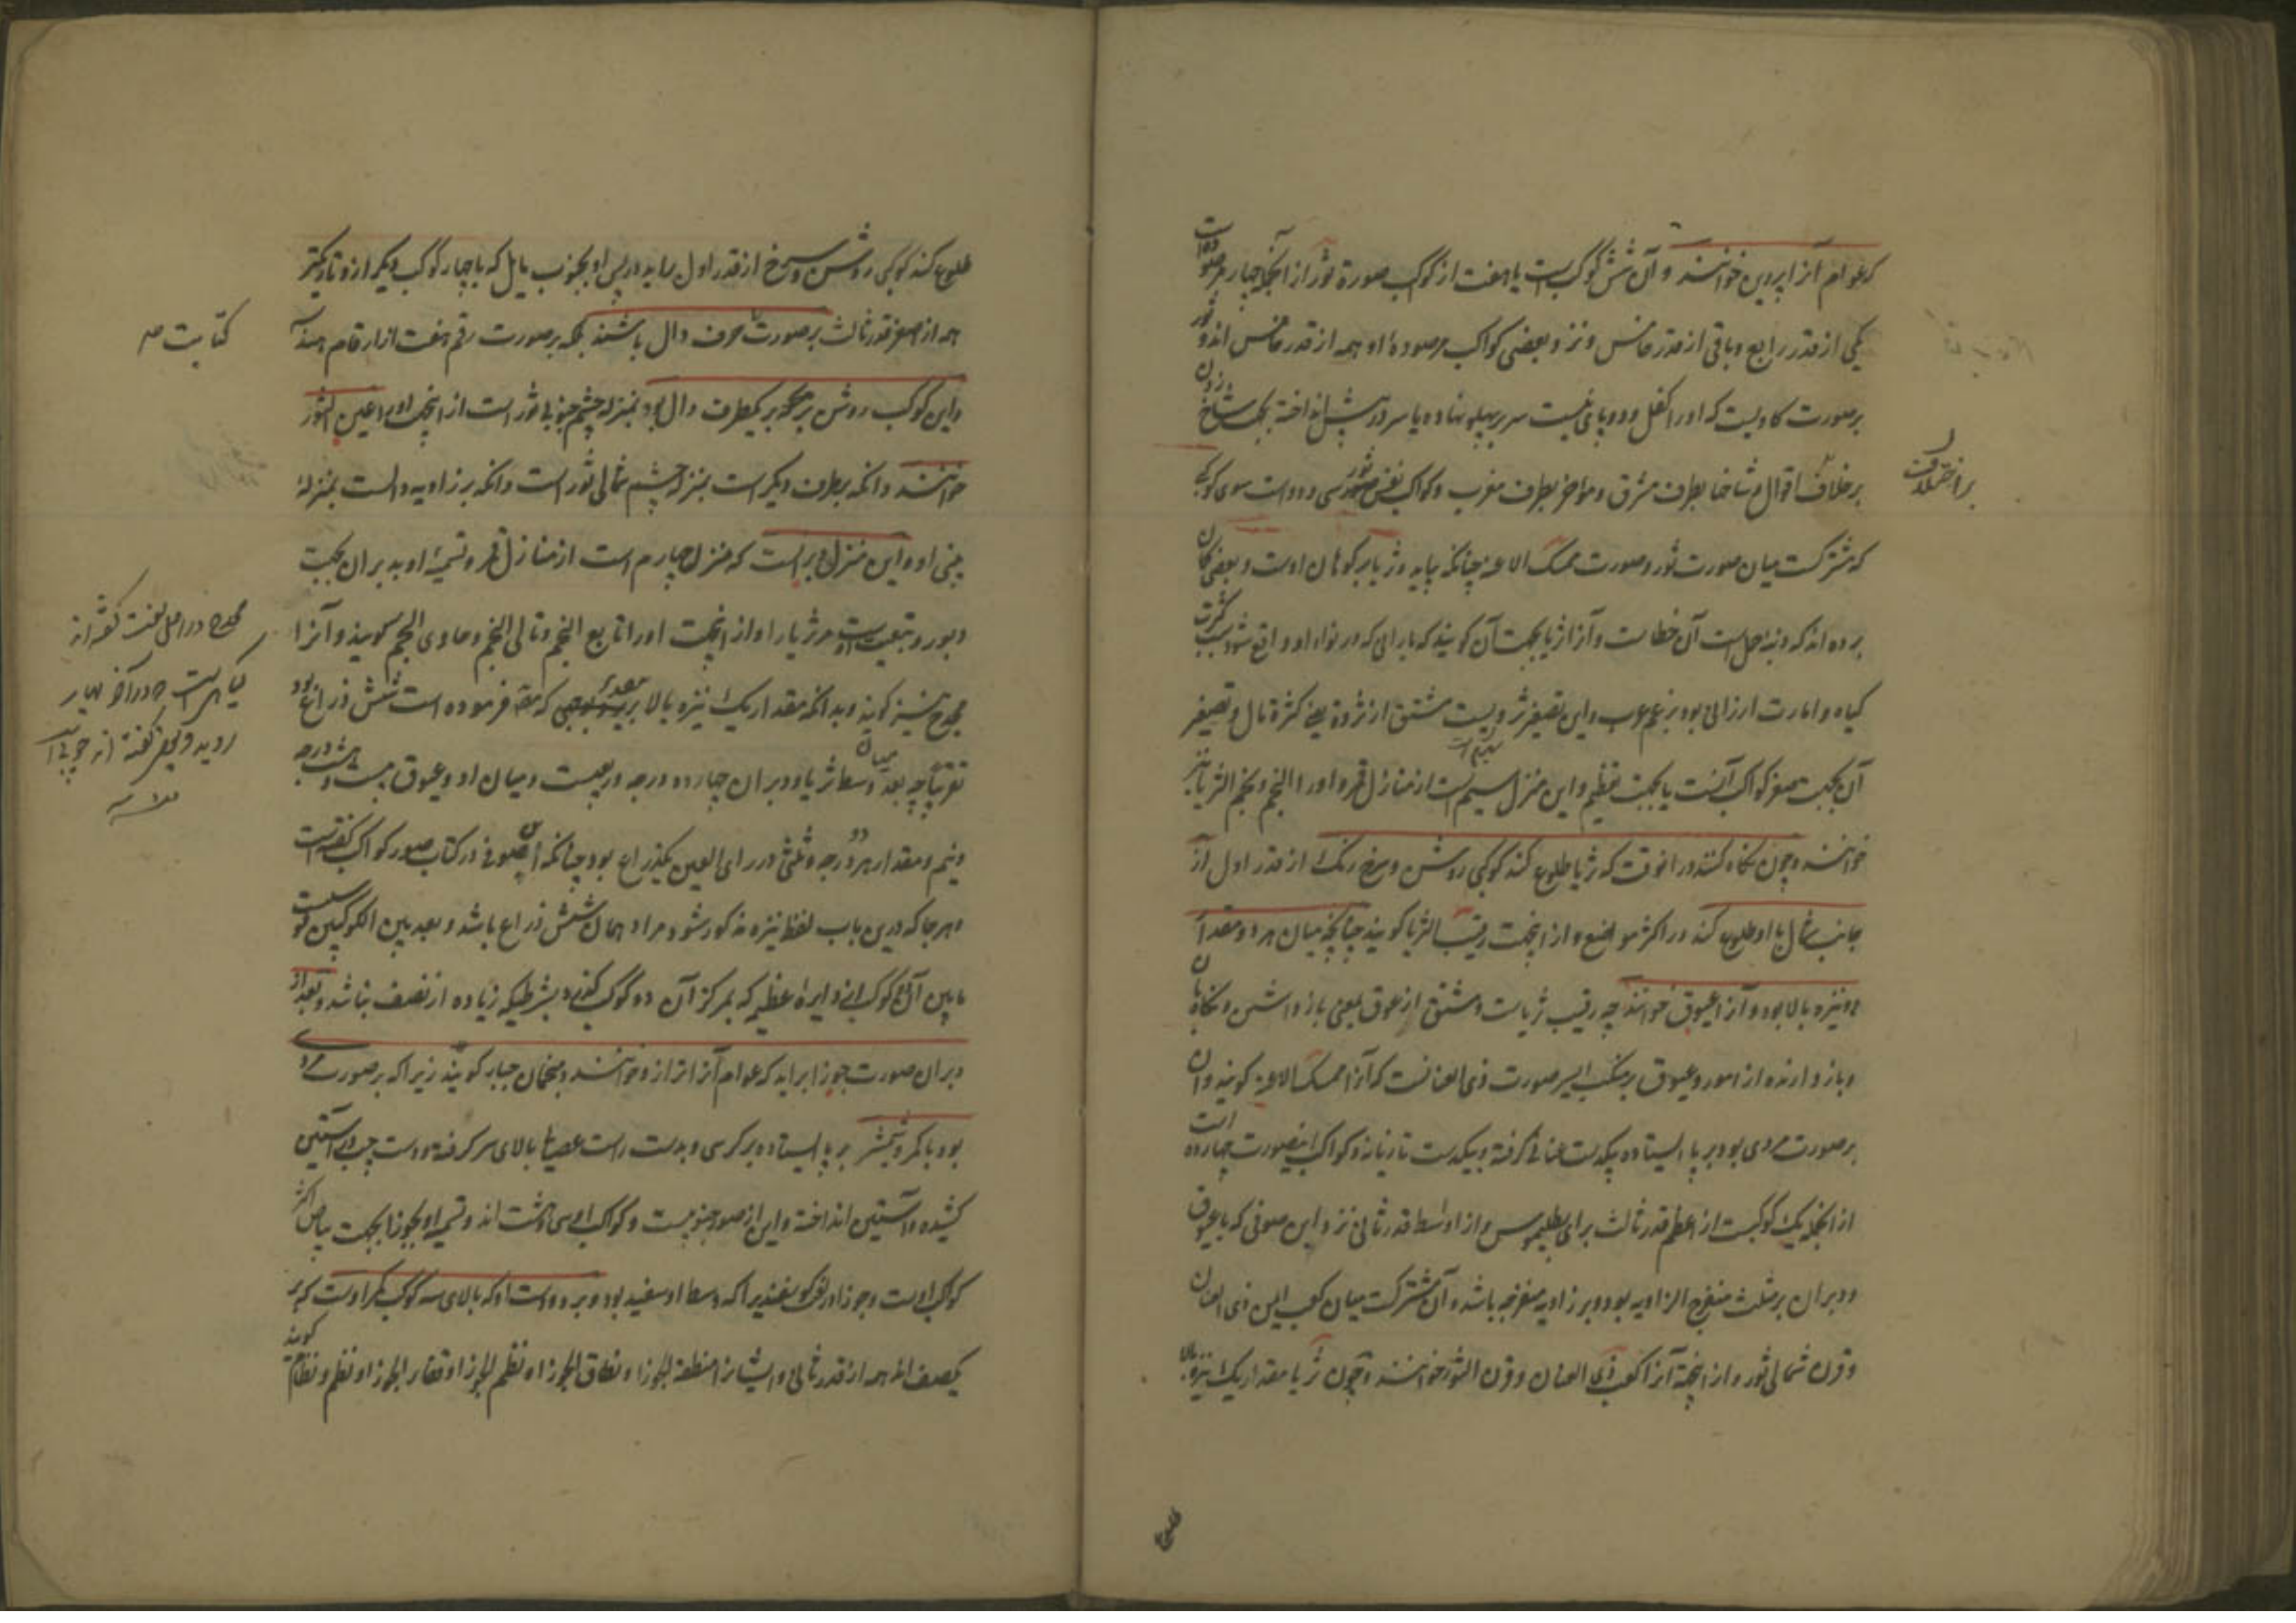 که عوام آنرا پروین خوانند و آن شش کوکب است یا هفت از کوکب صورة ثور از آنجمله چهار مرصود است
یکی از قدر رابع و باقی از قدر خامس و نزد بعضی کواکب مرصوده او همه از قدر خامس اند و ثور
بر صورت کاویست که او را کفل و دو پای نیست سر بر پهلو نهاده یا سر در پیش انداخته بجهت شاخ زدن
بر خلاف اقوال و شاخها بطرف مشرق و مؤخر بطرف مغرب و کواکب نفس صورت ثور سی و دو است سوی کوکبی
که مشترکست میان صورت ثور و صورت ممسک الاعنه چنانکه بیاید و ثریا بر کوهان اوست و بعضی گمان
برده اند که دنبه حمل است آن خطاست و آنرا ثریا بجهت آن کویند که بارانی که در نواء او واقع شود سبب کثرت
کیاه و امارت ارزانی بود بزعم عرب و این تصغیر ثرویست مشتق از ثروة یعنی کثرة مال و تصغیر
آن بجهت صغر کواکب آنست یا بجهت تعظیم و این منزل سیم است از منازل قمر و او را النجم و نجم الثریا نیز
خوانند و چون نکاه کنند در انوقت که ثریا طلوع کند کوکبی روشن و سرخ رنک از قدر اول از
جانب شمال با او طلوع کند در اکثر مواضع و از اینجهت رقیب الثریا کویند چنانچه میان هر دو مقدار
دو نیزه بالا بود و آنرا عیوق خوانند چه رقیب ثریاست و مشتق از عوق بمعنی باز داشتن و نکاهبان
و باز دارنده از امور و عیوق بر منکب ایسر صورت ذی العنانست که آنرا ممسک الاعنه کویند و آن
بر صورت مردی بود بر پا ایستاده بیکدست عنانی کرفته و بیکدست تازیانه و کواکب اینصورت چهارده است
از آنجمله یک کوکبست از اعظم قدر ثالث برای بطلیموس و از اواسط قدر ثانی نزد ابن صوفی که با عیوق
و دبران بر مثلث منفرج الزاویه بود و بر زاویه منفرجه باشد و آن مشترکست میان کعب ایمن ذی العنان
و قرن شمالی ثور و از اینجهة آنرا کعب ذی العنان و قرن الثور خوانند و چون ثریا مقدار یک نیزه بالا
بر اختلاف
طلوع
طلوع کند کوکبی روشن و سرخ از قدر اول براید در پس او بجنوب مایل که با چهار کوکب دیگر ازو تاریکتر
همه از اصغر قدر ثالث بر صورت حرف دال باشند بلکه بر صورت رقم هفت از ارقام هند
و این کوکب روشن بر یکطرف دال بود بمنزله چشم جنوبی ثور است از اینجهت او را عین الثور
خوانند و آنکه بطرف دیگر است بمنزله چشم شمالی ثور است و آنکه بر زاویه دالست بمنزلهٔ
بینی او و این منزل دبرانست که منزل چهارم است از منازل قمر و تسمیهٔ او بدبران بجهت
دبور و تبعیت اوست مر ثریا را و از اینجهت او را تابع النجم و تالی النجم و حادی النجم کویند و آنرا
مجدح نیز کویند و بدانکه مقدار یک نیزه بالا که فرموده است شش ذراع بود
تقریبا چه بعد میان وسط ثریا و دبران چهارده درجه و ربعیست و میان او و عیوق بیست و هشت درجه
و نیم و مقدار هر دو درجه و ثلثی در رای العین یکذراع بود چنانکه ابن صوفی در کتاب صور کواکب کفته است
و هرجا که درین باب لفظ نیزه مذکور شود مراد همان شش ذراع باشد و بعد بین الکوکبین قوسیست
مابین آن دو کوکب از دایره عظیمه که بمرکز آن دو کوکب کذرد بشرطیکه زیاده از نصف نباشد و بعد از
دبران صورت جوزا براید که عوام آنرا ترازو خوانند و منجمان جبار کویند زیرا که بر صورت مردی
بود با کمر و شمشیر بر پا ایستاده بر کرسی و بدست راست عصا بالای سر کرفته و دست چپ در آستین
کشیده و آستین انداخته و این از صور جنوبیست و کواکب او سی و هشت اند و تسمیه او بجوزا بجهت بیاض اکثر
کواکب اوست و جوزا در لغت کوسفندیرا که وسط او سفید بود و بر دو دست او که بالای سه کوکب کمر اوست که بر
یکصف اند همه از قدر ثانی و ایشانرا منطقة الجوزا و نطاق الجوزا و نظم الجوزا و فقار الجوزا و نظم و نظام کویند
کتابت صه
مجدح در اصل لغت
کیاهیست که در آخر بهار
روید و بعضی کفته اند چوبی است